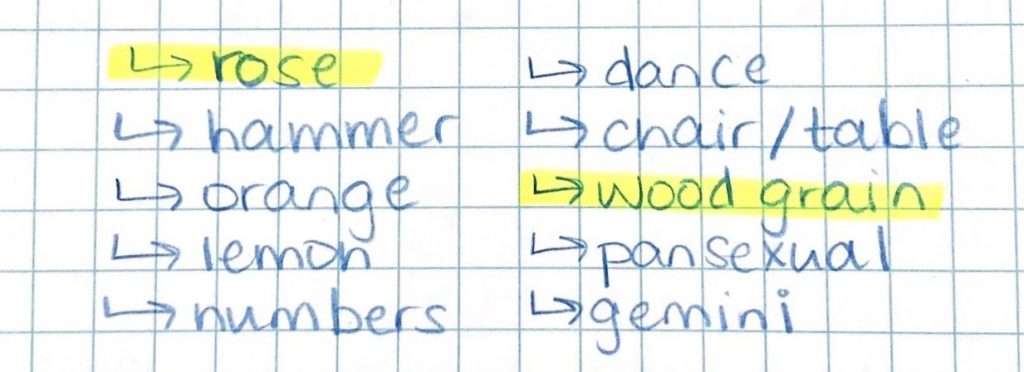 ↳ rose
↳ hammer
↳ orange
↳ lemon
↳ numbers
↳ dance
↳ chair/table
↳ wood grain
↳ pansexual
↳ gemini